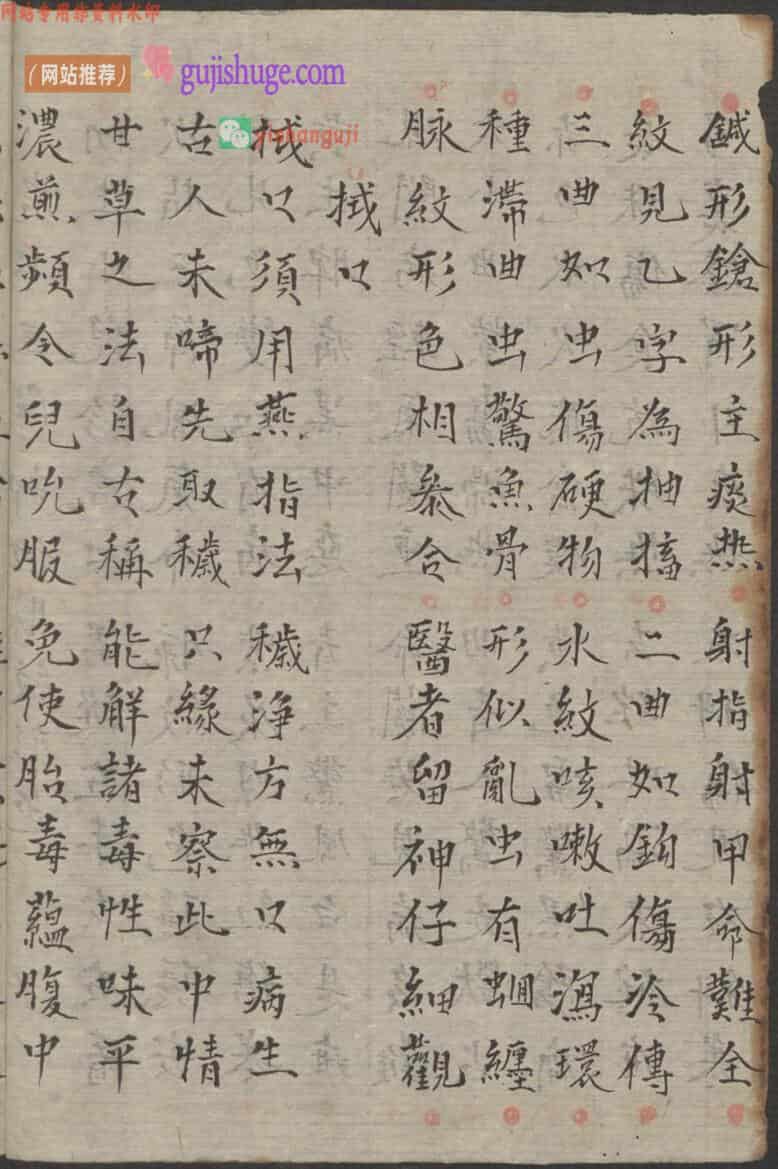 网站专用旅資料水印
（网站推荐）
gujishuge.com
yishanguji
鍼形鎗形主痰热射指射甲命難全
紋見乙字為抽搐二曲如鈎傷冷傳
三曲如虫傷硬物水紋咳嗽吐瀉環
種滯曲虫驚魚骨形似亂虫有蛔纏
脉紋形色相叅合醫者留神仔細觀
拭口
拭口須用燕指法穢淨方無口病生
古人未啼先取穢只緣未察此中情
甘草之法自古稱能解諸毒性味平
濃煎頻令兒吮服免使胎毒蘊腹中